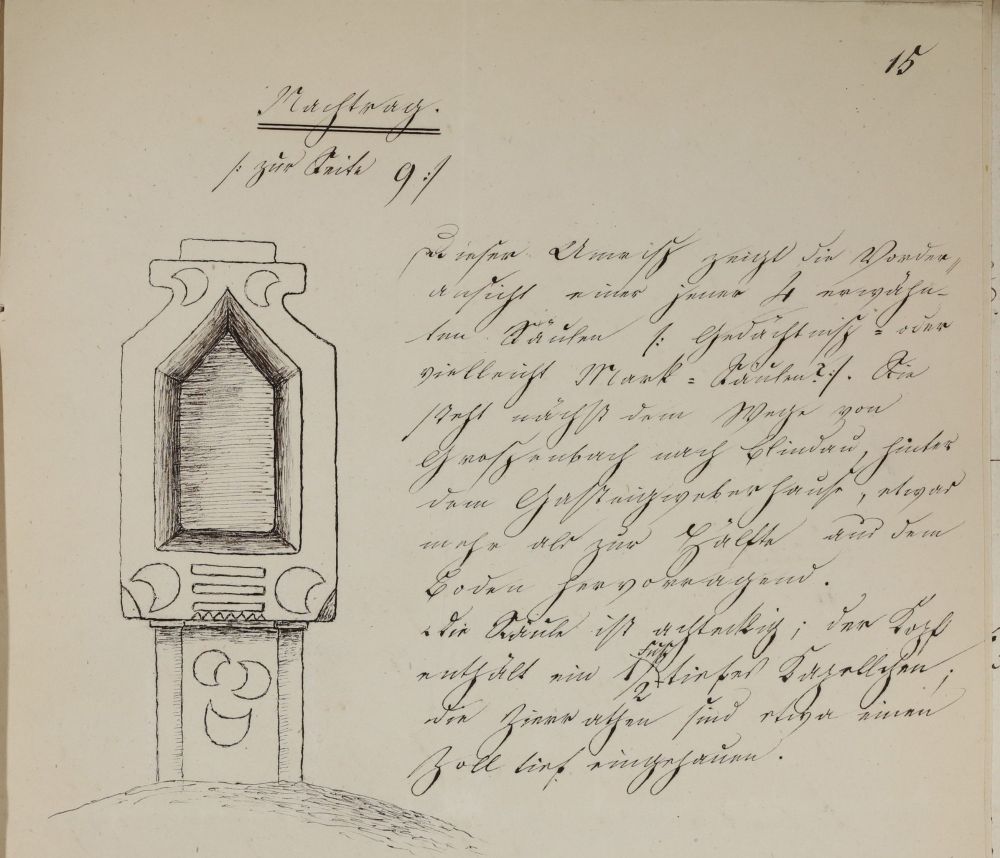 15
Nachtrag.
/: zur Seite 9 :/
Dieser Umriß zeigt die Vorder„
ansicht einer jener 4 erwähn-
ten Säulen /: Gedächtniß = oder
vielleicht Mark = Säulen? :/. Sie
steht nächst dem Wege von
Großenbach nach Blindau, hinter
dem Gasteigweberhause, etwas
mehr als zur Hälfte aus dem
Boden hervorragend.
Die Säule ist achteckig; der Kopf
enthält ein 1/2 Fuß tiefes Kapellchen;
die Zierrathen sind etwa einen
Zoll tief eingehauen.